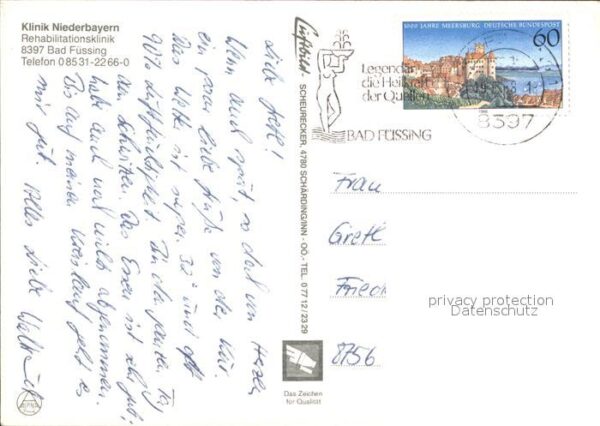 Klinik Niederbayern
Rehabilitationsklinik
8397 Bad Füssing
Telefon 08531-2266-0
Wenn auch spät, so doch von Herzen
ein paar liebe Grüße von der Kur.
Das Wetter ist super 32° und oft
90% Luftfeuchtigkeit. In der ganzen Tag
am Schwitzen. Das Essen ist sehr gut,
habe auch mal wieder abgenommen.
Bis auf meinen Kreislauf geht es
mir gut. Alles Liebe
Luftbild - SCHEURECKER, 4780 SCHÄRDING/INN - OÖ. - TEL. 0 77 12 / 23 29
Das Zeichen
für Qualität
1000 JAHRE MEERSBURG DEUTSCHE BUNDESPOST
60
Legendär
die Heilkraft
der Quellen
BAD FÜSSING
8397
Frau
Gretl
Fried
8756
privacy protection
Datenschutz